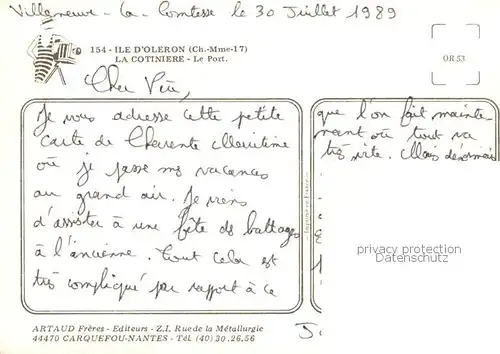 Villeneuve - la - Comtesse le 30 Juillet 1989
154 - ILE D'OLERON (Ch.-Mme-17)
LA COTINIERE - Le Port.
OR 53
Cher Véù,
Je vous adresse cette petite
carte de Charente Maritime
où je passe mes vacances
au grand air. Je viens
d'assister à une fête de battages
à l'ancienne. Tout cela est
très compliqué par rapport à ce
que l'on fait mainte
nant où tout va
très vite. Mais désormais
privacy protection
Datenschutz
ARTAUD Frères - Editeurs - Z.I. Rue de la Métallurgie
44470 CARQUEFOU-NANTES - Tél. (40) 30.26.56